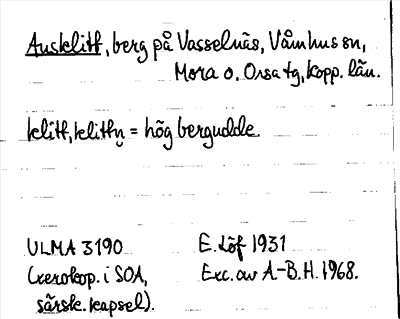 Ausklitt, berg på Vasselnäs, Våmhus sn,
Mora o. Orsa tg, Kopp. län.
klitt, klittn̥ = hög bergudde.
ULMA 3190
(xerokop. i SOA,
särsk. kapsel).
E. Löf 1931
Exc. av A-B. H. 1968.